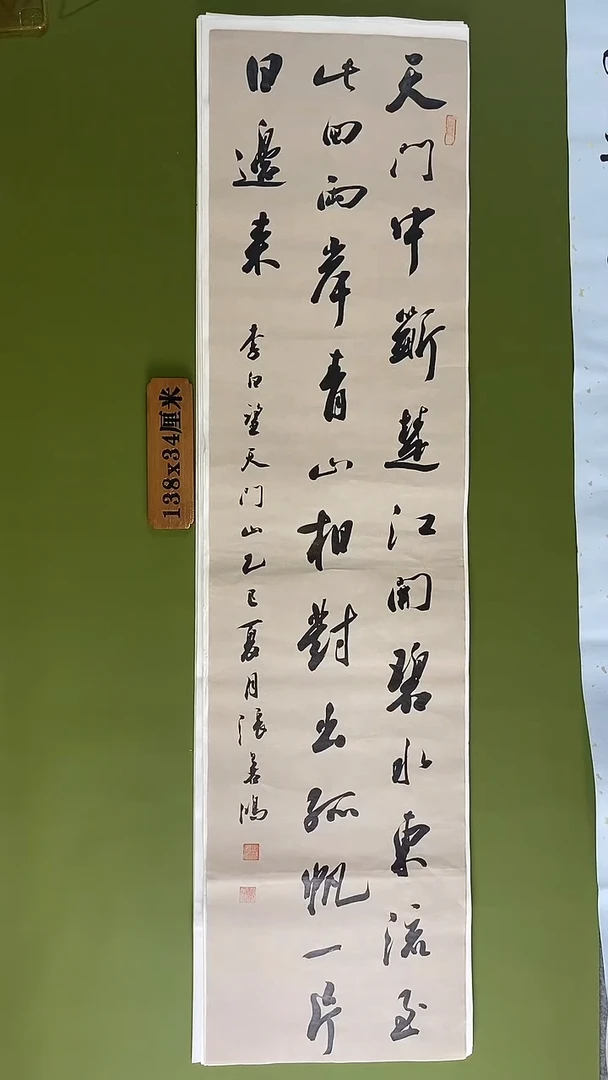 天门中斷楚江開碧水東流至
此回兩岸青山相對出孤帆一片
日邊来
李白望天门山乙巳夏月張善鴻
138x34厘米